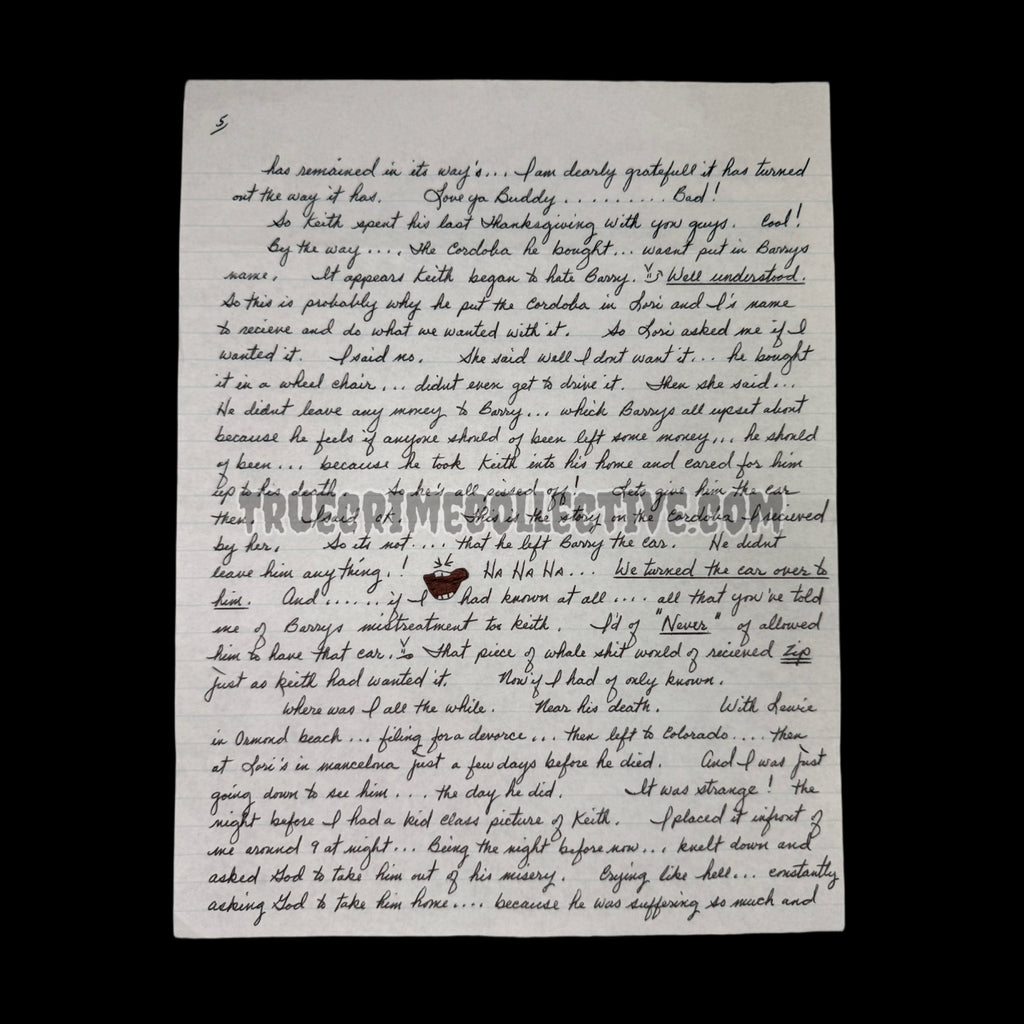 5/
has remained in its way's... I am dearly gratefull it has turned
out the way it has. Love ya Buddy .......... Bad!
So Keith spent his last Thanksgiving with you guys. Cool!
By the way .... The Cordoba he bought... wasnt put in Barrys
name. It appears Keith began to hate Barry. Well understood.
So this is probably why he put the Cordoba in Lori and I's name
to recieve and do what we wanted with it. So Lori asked me if I
wanted it. I said no. She said well I dont want it... he bought
it in a wheel chair... didnt even get to drive it. Then she said...
He didnt leave any money to Barry... which Barrys all upset about
because he feels if anyone should of been left some money... he should
of been... because he took Keith into his home and cared for him
up to his death. So he's all pissed off! Lets give him the car
then. I said ok. This is the story on the Cordoba I recieved
TRUECRIMECOLLECTIVE.COM
by her. So its not.... that he left Barry the car. He didnt
leave him any thing.! HA HA HA... We turned the car over to
him. And ...... if I had known at all .... all that you've told
me of Barrys mistreatment to Keith. I'd of "Never" of allowed
him to have that car. That piece of whale shit would of recieved zip
just as Keith had wanted it. Now if I had of only known.
Where was I all the while. Near his death. With Lewie
in Ormond beach... filing for a devorce... then left to Colorado.... then
at Lori's in mancelona just a few days before he died. And I was just
going down to see him... the day he did. It was strange! The
night before I had a kid class picture of Keith. I placed it infront of
me around 9 at night... Being the night before now... knelt down and
asked God to take him out of his misery. Crying like hell... constantly
asking God to take him home.... because he was suffering so much and